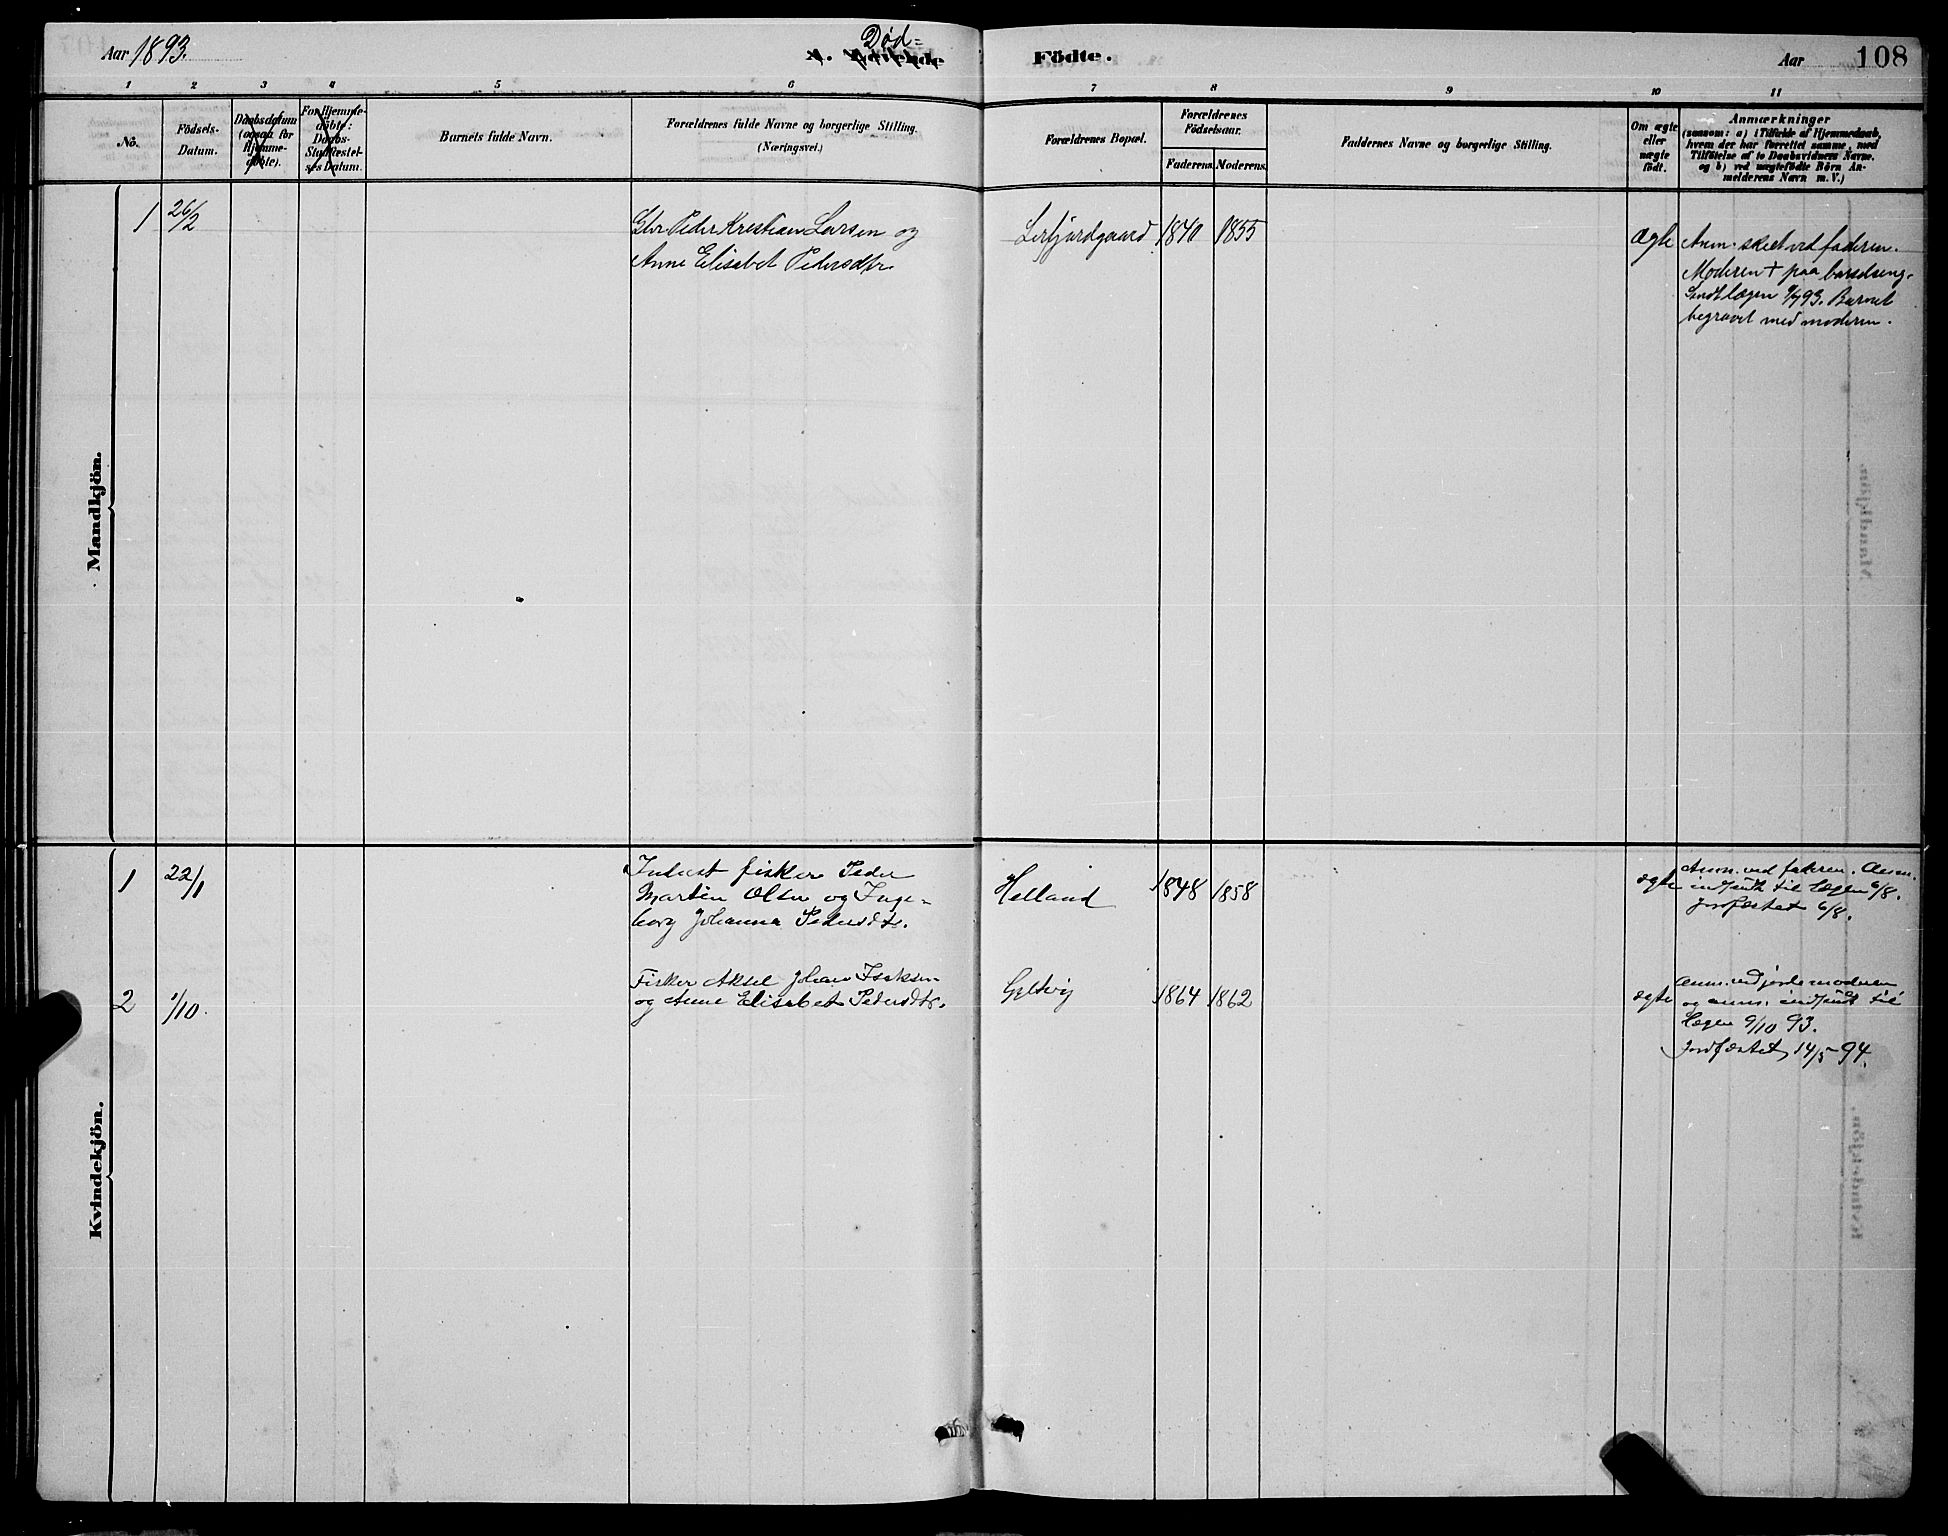 Aar 1893.
Död=
A. Levende
Födte.
Aar
108
1 2 3 4 5 6 7 8 9 10 11
No.
Födsels-
Datum.
Daabsdatum
(ogsaa for
Hjemme-
døbte).
For Hjemme-
døbte:
Daabs-
Stadfæstel-
ses Datum.
Barnets fulde Navn.
Forældrenes fulde Navne og borgerlige Stilling.
(Næringsvei.)
Forældrenes Bopæl.
Forældrenes
Födselsaar.
Faderens. Moderens.
Faddernes Navne og borgerlige Stilling.
Om ægte
eller
uægte
födt.
Anmærkninger
(saasom: a) i Tilfælde af Hjemmedaab,
hvem der har forrettet samme, med
Tilföielse af to Daabsvidners Navne,
og b) ved uægtefödte Börn An-
melderens Navn m. V.)
Mandkjön.
1 26/2
Gbr Peder Kristian Larsen og
Anne Elisabet Pedersdtr.
Leirfjordgaard 1840 1855
ægte
Anm. skeet ved faderen.
Moderen + paa barselseng.
Sendt lægen 93. Barnet
begravet med moderen.
Kvindekjön.
1 22/1
Inderst fisker Peder
Martin Olsen og Inge-
borg Johanna Pedersdtr.
Helland 1848 1858
ægte
Anm. ved faderen. Anm.
indsendt til Lægen 6/8.
Jordfæstet 6/8.
2 1/10.
Fisker Aksel Johan Isaksen
og Anne Elisabet Pedersdtr.
Gyltvig 1864 1862
ægte
Anm. ved jordemoderen
og anm. indsendt til
Lægen 9/10 93.
Jordfæstet 14/5-94.